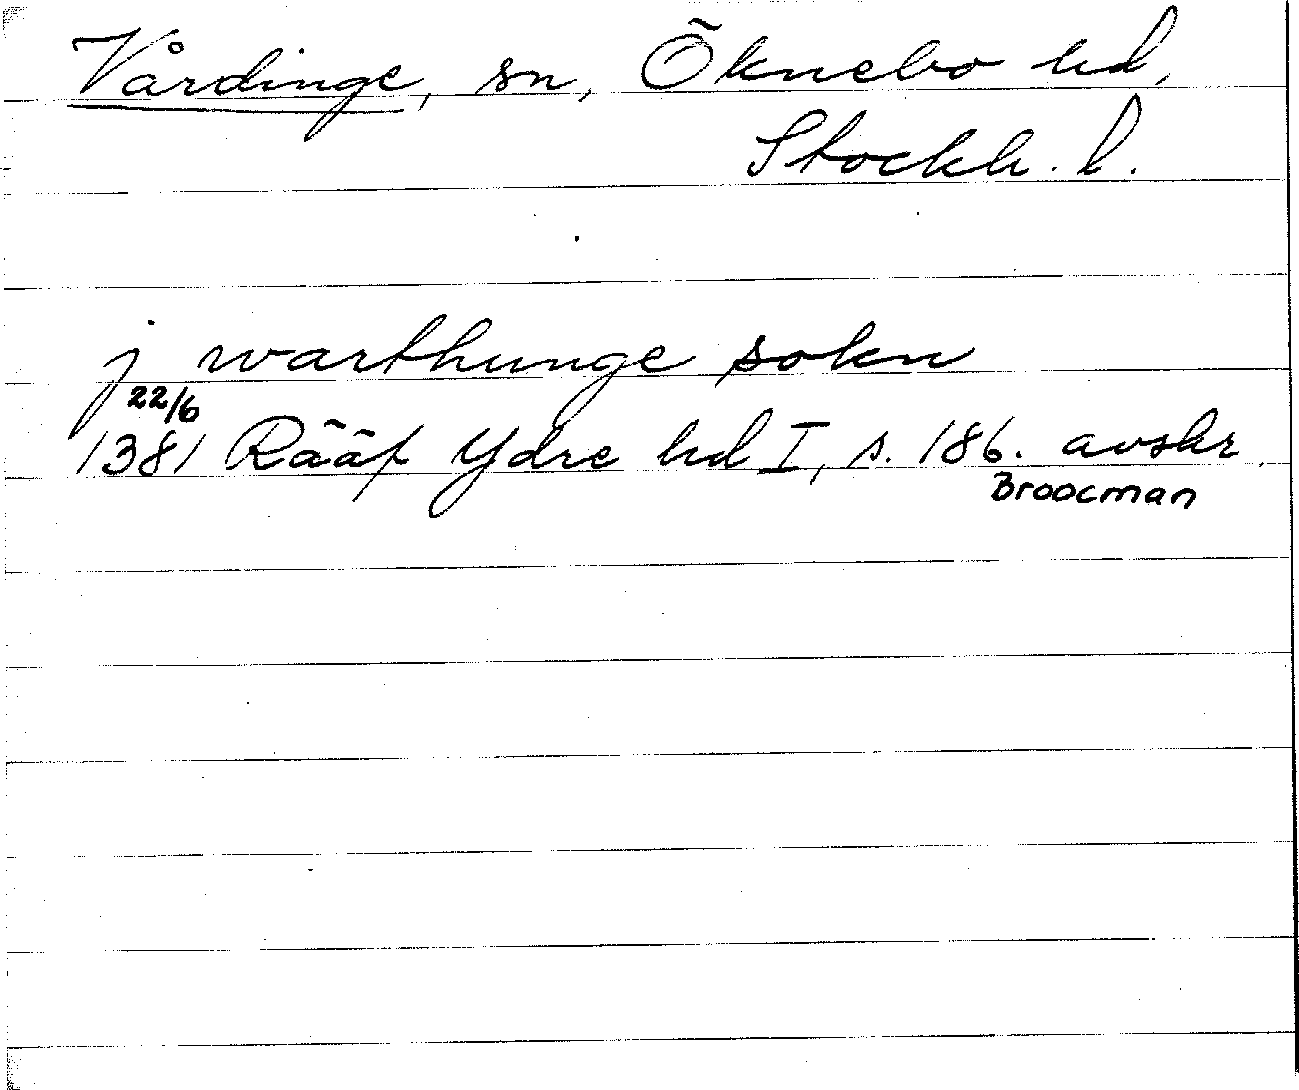 Vårdinge, sn, Öknebo hd,
Stockh. l.
j warthunge sokn
22/6
1381 Rääf Ydre hd I, s. 186. avskr.
Broocman